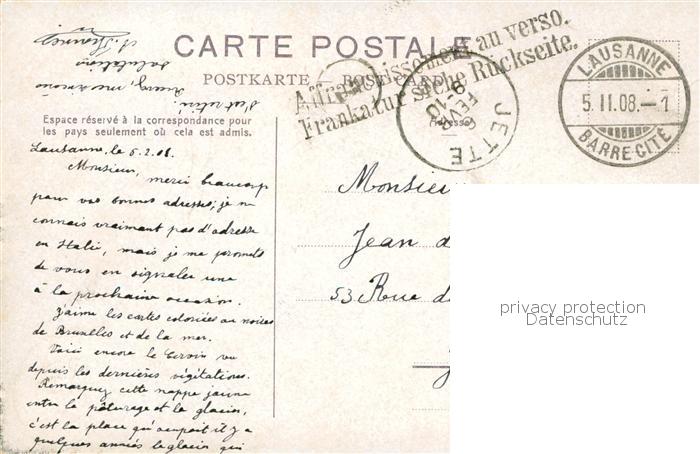 CARTE POSTALE
POSTKARTE —
Affranchissement au verso.
Frankatur siehe Rückseite.
LAUSANNE
5.II.08.–1
BARRE CITÉ
JETTE
8-10
FEVR
Espace réservé à la correspondance pour
les pays seulement où cela est admis.
Adresse
Lausanne, le 5.2.08.
Monsieur, merci beaucoup
pour vos bonnes adresses; je ne
connais vraiment pas d'adresse
en Italie, mais je me promets
de vous en signaler une
à la prochaine occasion.
J'aime les cartes coloriées ou noires
de Bruxelles et de la mer.
Voici encore le Cervin vu
depuis les dernières végétations.
Remarquez cette nappe jaune
entre le pâturage et le glacier,
c'est la place qu'occupait il y a
quelques années le glacier qui
salutations
Monsieur
Jean d
53 Rue de
privacy protection
Datenschutz